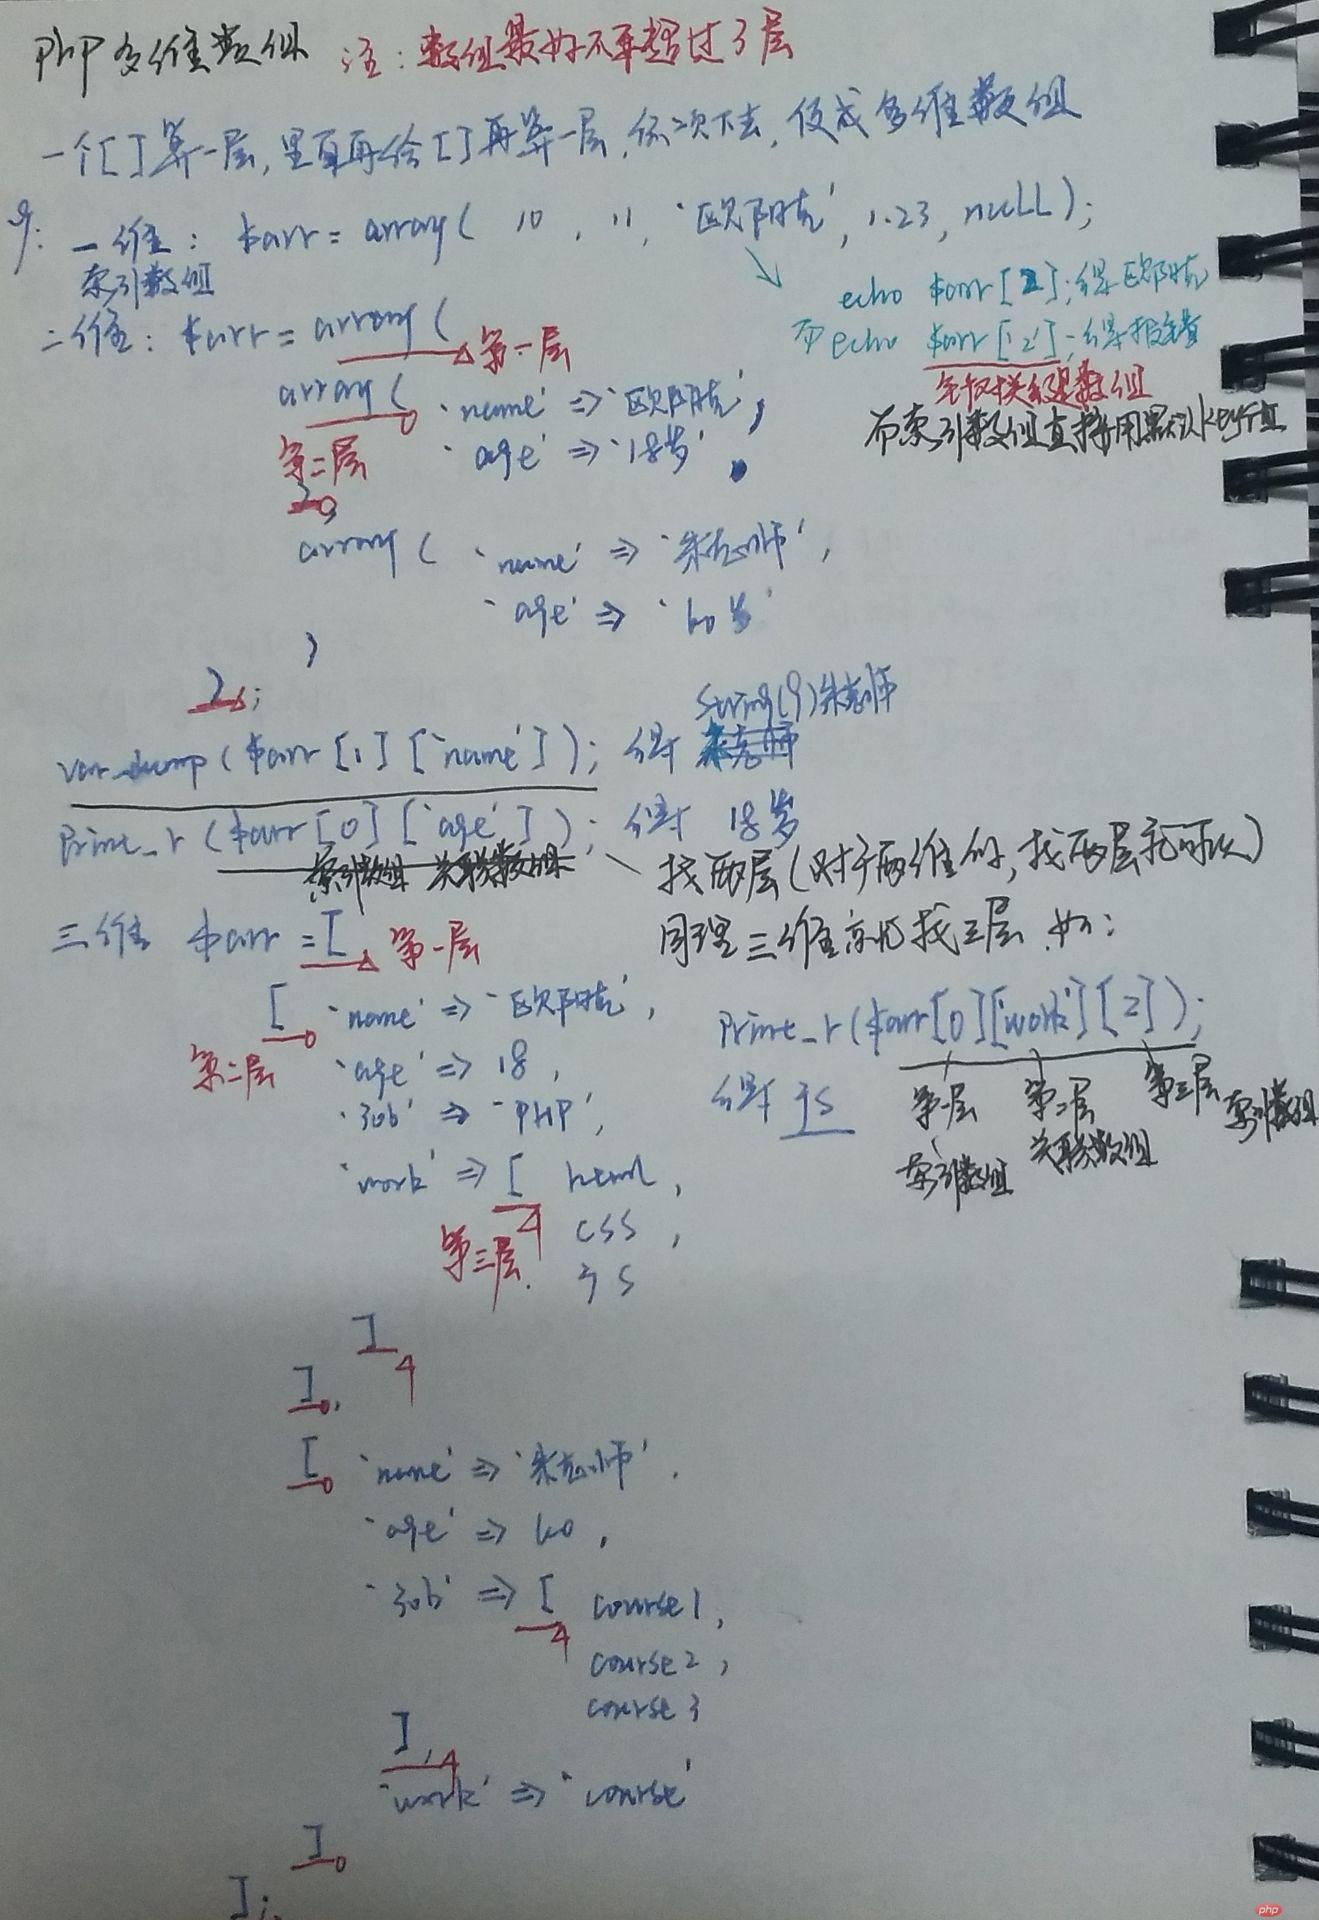 PHP多维数组 注：数组最好不要超过3层
一个[ ]算一层，里面再给[ ]再算一层，依次下去，便成多维数组
例：一维：$arr = array( 10 , 11, '欧阳克', 1.23, null);
索引数组
echo $arr[2];得欧阳克
而echo $arr['2'];得报错
而索引数组直接用默认key值
二维：$arr = array(
第一层
array( 'name' => '欧阳克',
第二层
'age' => '18岁'
),
array( 'name' => '朱老师',
'age' => '60岁'
)
);
String(9)朱老师
var_dump($arr[1]['name']); 得 朱老师
Print_r($arr[0]['age']); 得 18岁
索引数组 关联数组
找两层(对于两维的,找两层就可以)
同理三维就找三层 如:
三维 $arr =[
第一层
[ 'name' => '欧阳克',
第二层
'age' => 18,
'Job' => 'PHP',
'work' => [ html,
第三层
css,
JS
]
],
Print_r($arr[0]['work'][2]);
得 JS
第一层 第二层 第三层
索引数组 关联数组 索引数组
[ 'name' => '朱老师',
'age' => 60,
'Job' => [ course1,
course2,
course3
],
'work' => 'course'
]
];
php